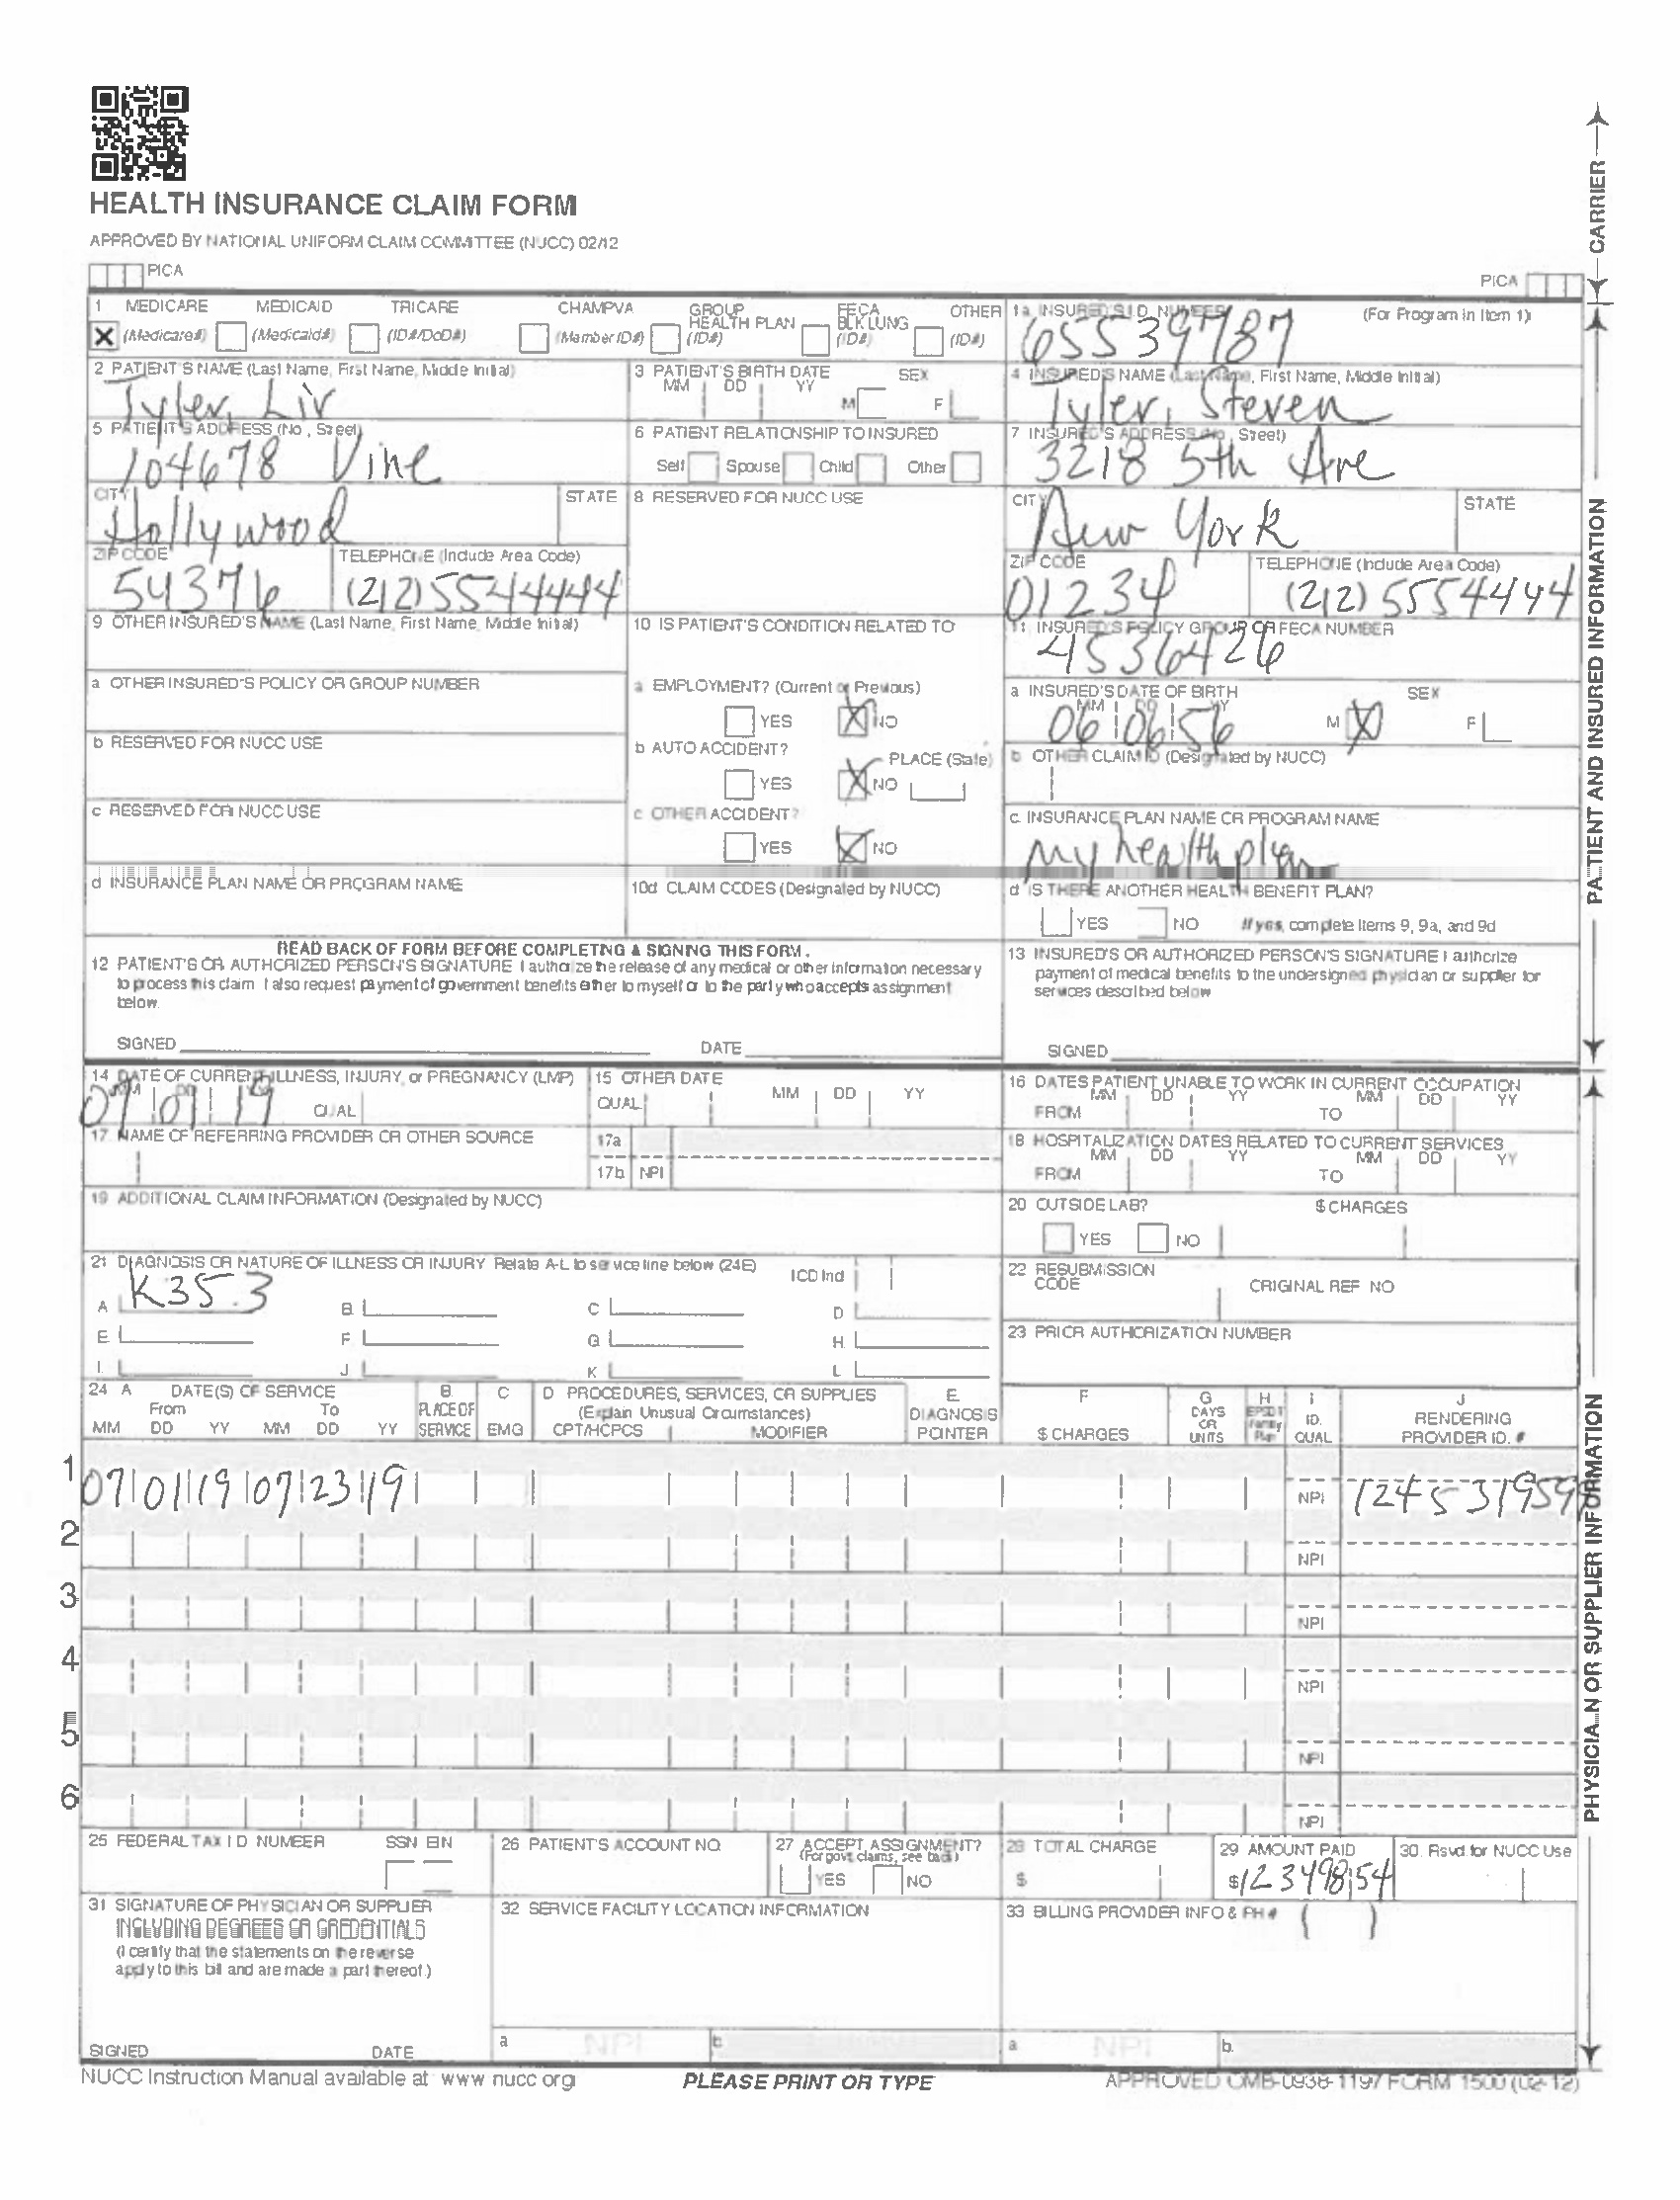 HEALTH INSURANCE CLAIM FORM
APPROVED BY NATIONAL UNIFORM CLAIM COMMITTEE (NUCC) 02/12
PICA
PICA
CARRIER
1 MEDICARE MEDICAID TRICARE CHAMPVA GROUP HEALTH PLAN FECA BLK LUNG OTHER
X (Medicare#) (Medicaid#) (ID#/DoD#) (Member ID#) (ID#) (ID#) (ID#)
1a. INSURED'S I.D. NUMBER (For Program in Item 1)
65539787
2 PATIENT'S NAME (Last Name, First Name, Middle Initial)
Tyler, Liv
3 PATIENT'S BIRTH DATE SEX
MM DD YY M F
4 INSURED'S NAME (Last Name, First Name, Middle Initial)
Tyler, Steven
5 PATIENT'S ADDRESS (No., Street)
104678 Vine
6 PATIENT RELATIONSHIP TO INSURED
Self Spouse Child Other
7 INSURED'S ADDRESS (No., Street)
3218 5th Ave
CITY STATE
Hollywood
8 RESERVED FOR NUCC USE
CITY STATE
New York
ZIP CODE TELEPHONE (Include Area Code)
54376 (212) 5544444
ZIP CODE TELEPHONE (Include Area Code)
01234 (212) 5554444
9 OTHER INSURED'S NAME (Last Name, First Name, Middle Initial)
10 IS PATIENT'S CONDITION RELATED TO
11. INSURED'S POLICY GROUP OR FECA NUMBER
4536426
a OTHER INSURED'S POLICY OR GROUP NUMBER
a EMPLOYMENT? (Current or Previous)
YES X NO
a INSURED'S DATE OF BIRTH SEX
MM DD YY
06 06 56 M X F
b RESERVED FOR NUCC USE
b AUTO ACCIDENT? PLACE (State)
YES X NO
b OTHER CLAIM ID (Designated by NUCC)
c RESERVED FOR NUCC USE
c OTHER ACCIDENT?
YES X NO
c. INSURANCE PLAN NAME OR PROGRAM NAME
my health plan
d INSURANCE PLAN NAME OR PROGRAM NAME
10d CLAIM CODES (Designated by NUCC)
d IS THERE ANOTHER HEALTH BENEFIT PLAN?
YES NO If yes, complete items 9, 9a, and 9d
READ BACK OF FORM BEFORE COMPLETING & SIGNING THIS FORM.
12 PATIENT'S OR AUTHORIZED PERSON'S SIGNATURE I authorize the release of any medical or other information necessary
to process this claim I also request payment of government benefits either to myself or to the party who accepts assignment
below.
SIGNED DATE
13 INSURED'S OR AUTHORIZED PERSON'S SIGNATURE I authorize
payment of medical benefits to the undersigned physician or supplier for
services described below
SIGNED
PATIENT AND INSURED INFORMATION
14 DATE OF CURRENT ILLNESS, INJURY, or PREGNANCY (LMP)
MM DD
07 01 19 QUAL
15 OTHER DATE
QUAL MM DD YY
16 DATES PATIENT UNABLE TO WORK IN CURRENT OCCUPATION
MM DD YY MM DD YY
FROM TO
17. NAME OF REFERRING PROVIDER OR OTHER SOURCE
17a
17b NPI
18 HOSPITALIZATION DATES RELATED TO CURRENT SERVICES
MM DD YY MM DD YY
FROM TO
19 ADDITIONAL CLAIM INFORMATION (Designated by NUCC)
20 OUTSIDE LAB? $ CHARGES
YES NO
21 DIAGNOSIS OR NATURE OF ILLNESS OR INJURY Relate A-L to service line below (24E) ICD Ind
A K35.3 B C D
E F G H
I J K L
22 RESUBMISSION CODE ORIGINAL REF NO
23 PRIOR AUTHORIZATION NUMBER
24 A DATE(S) OF SERVICE B C D PROCEDURES, SERVICES, OR SUPPLIES E F G H I J
From To PLACE OF (Explain Unusual Circumstances) DIAGNOSIS DAYS OR UNITS EPSDT Family Plan ID. RENDERING
MM DD YY MM DD YY SERVICE EMG CPT/HCPCS MODIFIER POINTER $ CHARGES QUAL PROVIDER ID. #
1 07 01 19 07 23 19 NPI 124531959
2 NPI
3 NPI
4 NPI
5 NPI
6 NPI
PHYSICIAN OR SUPPLIER INFORMATION
25 FEDERAL TAX I D NUMBER SSN EIN
26 PATIENT'S ACCOUNT NO.
27 ACCEPT ASSIGNMENT?
(For govt. claims, see back)
YES NO
28 TOTAL CHARGE
$
29 AMOUNT PAID
$ 123498 54
30. Rsvd for NUCC Use
31 SIGNATURE OF PHYSICIAN OR SUPPLIER
INCLUDING DEGREES OR CREDENTIALS
(I certify that the statements on the reverse
apply to this bill and are made a part thereof.)
SIGNED DATE
32 SERVICE FACILITY LOCATION INFORMATION
a NPI b
33 BILLING PROVIDER INFO & PH # ( )
a NPI b.
NUCC Instruction Manual available at www nucc org
PLEASE PRINT OR TYPE
APPROVED OMB-0938-1197 FORM 1500 (02-12)